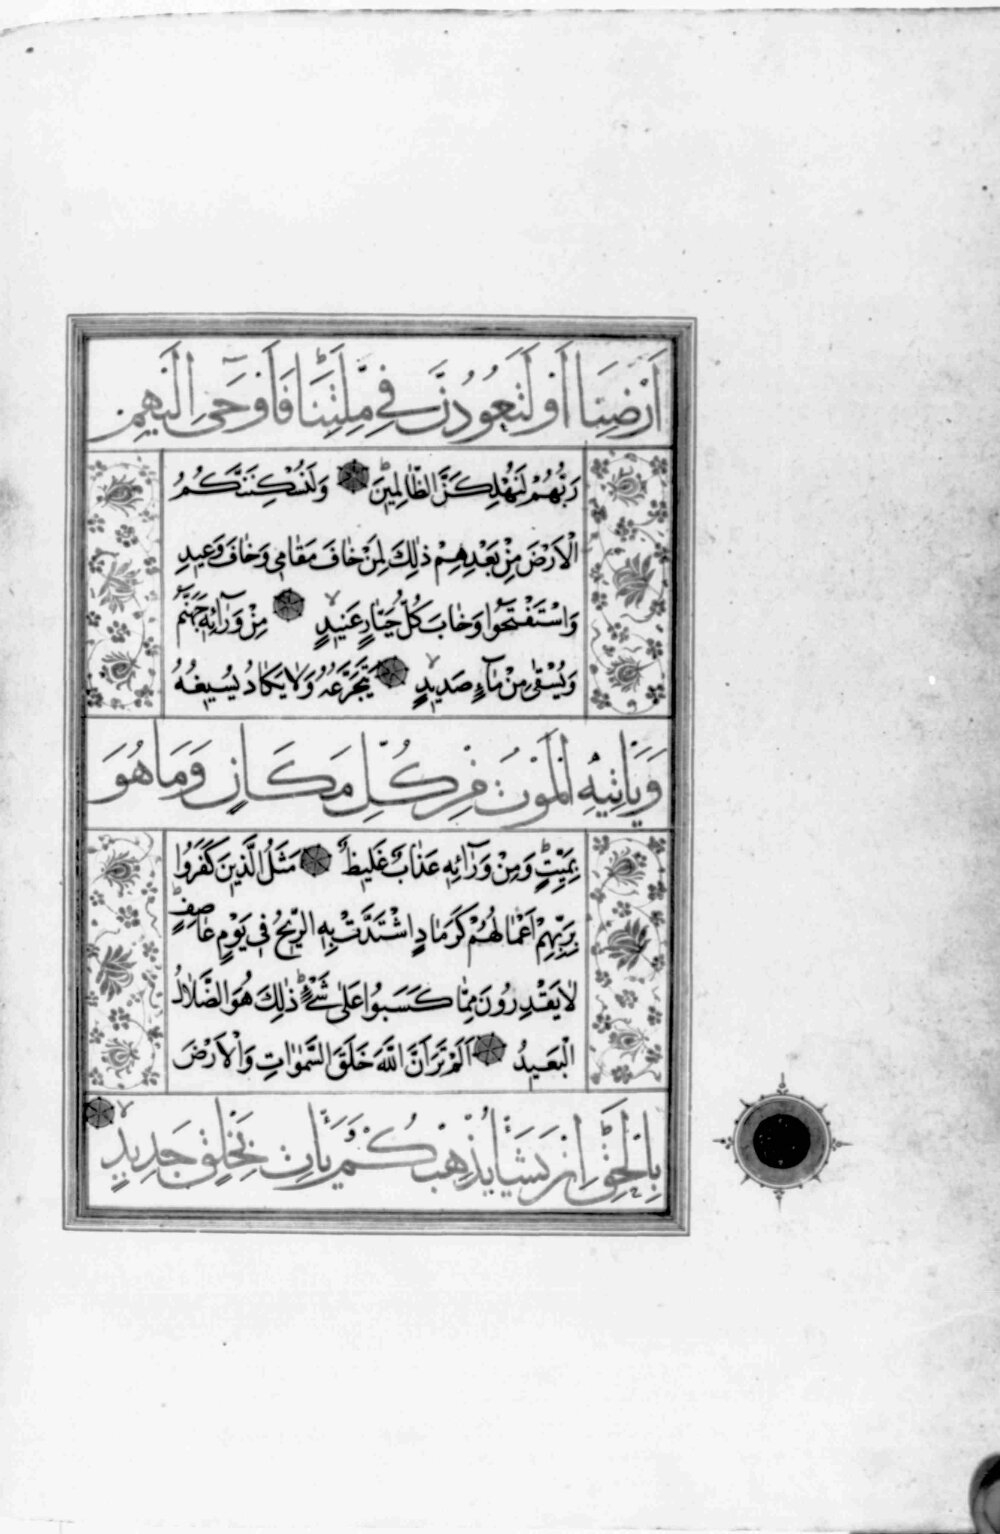 اَرْضِنَا اَوْ لَتَعُودُنَّ فِي مِلَّتِنَا فَاَوْحَى اِلَيْهِمْ
رَبُّهُمْ لَنُهْلِكَنَّ الظَّالِمِينَ وَلَنُسْكِنَنَّكُمُ
الْاَرْضَ مِنْ بَعْدِهِمْ ذٰلِكَ لِمَنْ خَافَ مَقَامِي وَخَافَ وَعِيدِ
وَاسْتَفْتَحُوا وَخَابَ كُلُّ جَبَّارٍ عَنِيدٍ مِنْ وَرَآئِهِ جَهَنَّمُ
وَيُسْقٰى مِنْ مَآءٍ صَدِيدٍ يَتَجَرَّعُهُ وَلَا يَكَادُ يُسِيغُهُ
وَيَاْتِيهِ الْمَوْتُ مِنْ كُلِّ مَكَانٍ وَمَا هُوَ
بِمَيِّتٍ وَمِنْ وَرَآئِهِ عَذَابٌ غَلِيظٌ مَثَلُ الَّذِينَ كَفَرُوا
بِرَبِّهِمْ اَعْمَالُهُمْ كَرَمَادٍ اشْتَدَّتْ بِهِ الرِّيحُ فِي يَوْمٍ عَاصِفٍ
لَا يَقْدِرُونَ مِمَّا كَسَبُوا عَلٰى شَيْءٍ ذٰلِكَ هُوَ الضَّلَالُ
الْبَعِيدُ اَلَمْ تَرَ اَنَّ اللّٰهَ خَلَقَ السَّمٰوَاتِ وَالْاَرْضَ
بِالْحَقِّ اِنْ يَشَاْ يُذْهِبْكُمْ وَيَاْتِ بِخَلْقٍ جَدِيدٍ